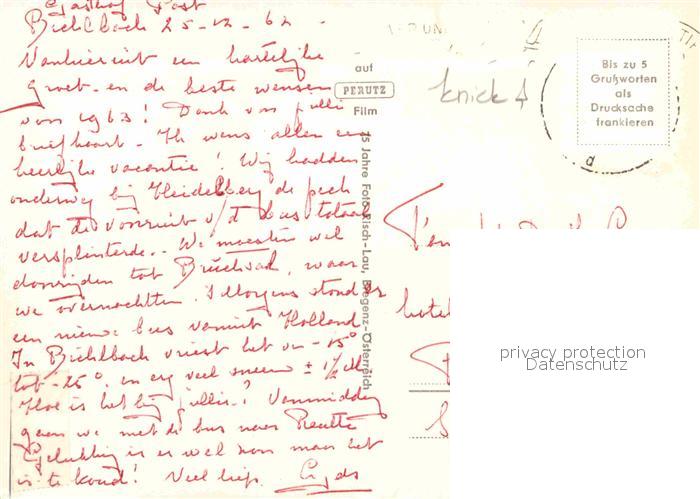 Gasthof Post
Bichlbach 25-12-62.
Vanhieruit een hartelijke
groet en de beste wensen
voor 1963! Dank voor jullie
briefkaart. Ik wens allen een
heerlijke vacantie! Wij hadden
onderweg bij Heidelberg de pech
dat de voorruit v/d bus totaal
versplinterde. We moesten wel
doorrijden tot Bruchsal, waar
we overnachtten. 's Morgens stond er
een nieuwe bus vanuit Holland
In Bichlbach vriest het van -15°
tot -25° en erg veel sneeuw ± 1/2 M
Hoe is het bij jullie? Vanmiddag
gaan we met de bus naar Reutte
Gelukkig is er wel zon maar het
is te koud! Veel liefs
auf
PERUTZ
Film
75 Jahre Foto-Risch-Lau, Bregenz-Österreich
knick
Bis zu 5
Grußworten
als
Drucksache
frankieren
d
Fam
hotel
privacy protection
Datenschutz